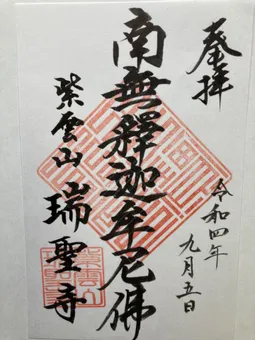 奉拝
令和四年
九月五日
南無釋迦牟尼佛
紫雲山
瑞聖寺